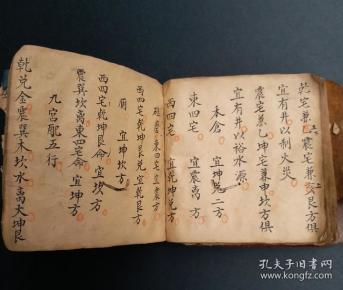 乾宅兼亥震宅兼艮方俱
宜有井以利火災
震宅兼乙坤宅兼申坎方俱
宜有井以裕水源
禾倉　宜坤兌二方
東四宅　宜震离方
西四宅　宜乾坤兌方
東四宅宜震方
西四宅乾坤艮兌宜乾艮方
廁　宜坤坎方
西四宅乾坤艮兌命宜坎方
震巽坎离東四宅命宜坤方
九宮配五行
乾兌金震巽木坎水离火坤艮
孔夫子旧书网